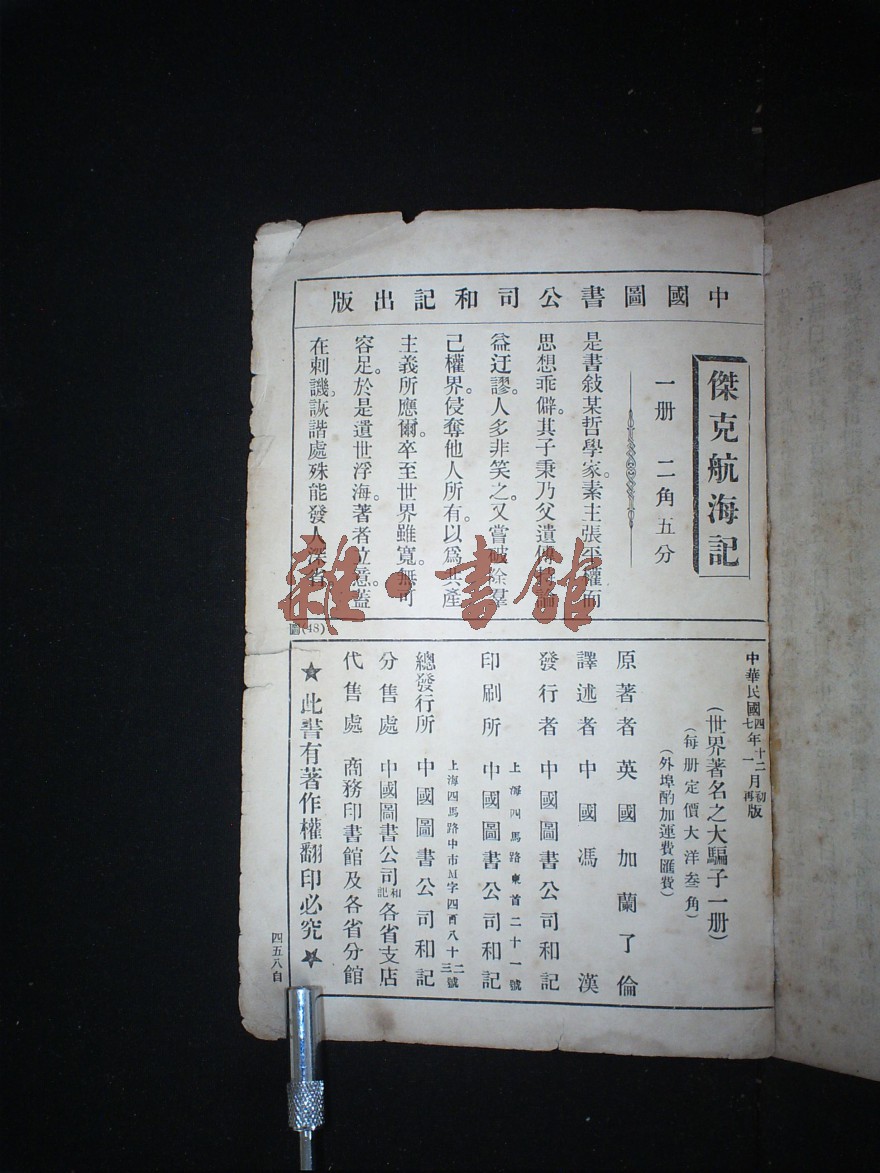 中國圖書公司和記出版
傑克航海記
一册 二角五分
是書敍某哲學家。素主張平權而
思想乖僻。其子秉乃父遺傳。
益迂謬。人多非笑之。又嘗破除羣
己權界。侵奪他人所有。以爲共產
主義所應爾。卒至世界雖寬。無可
容足。於是遺世浮海。著者立意。蓋
在刺譏。詼諧處殊能發人深省。
圖(48)
中華民國四年十二月初版
七年一月再版
(世界著名之大騙子一册)
(每册定價大洋叁角)
(外埠酌加運費匯費)
原著者 英國加蘭了倫
譯述者 中國馮漢
發行者 中國圖書公司和記
上海四馬路東首二十一號
印刷所 中國圖書公司和記
上海四馬路中市M字四百八十二三號
總發行所 中國圖書公司和記
分售處 中國圖書公司和記各省支店
代售處 商務印書館及各省分館
★此書有著作權翻印必究★
四五八自
雜·書館